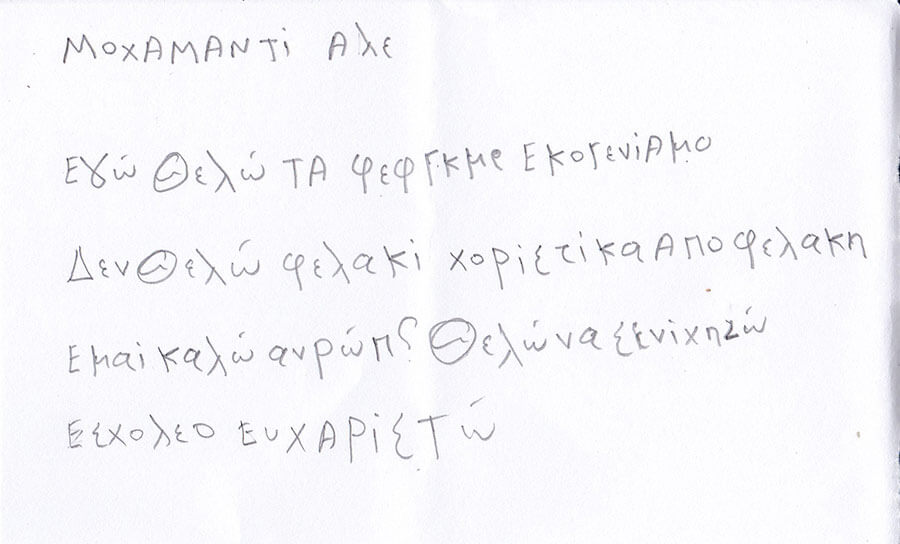 ΜΟΧΑΜΑΝΤί Αλε
Εγώ Θελώ ΤΑ φεφγκμε Εκογενίαμο
Δεν Θελώ φελακί χορίςτίκα Απο φελακη
Εμαί καλώ ανρώπς Θελώ να ςενίχηζώ
Εςχολεο ΕυΧΑΡίςΤώ